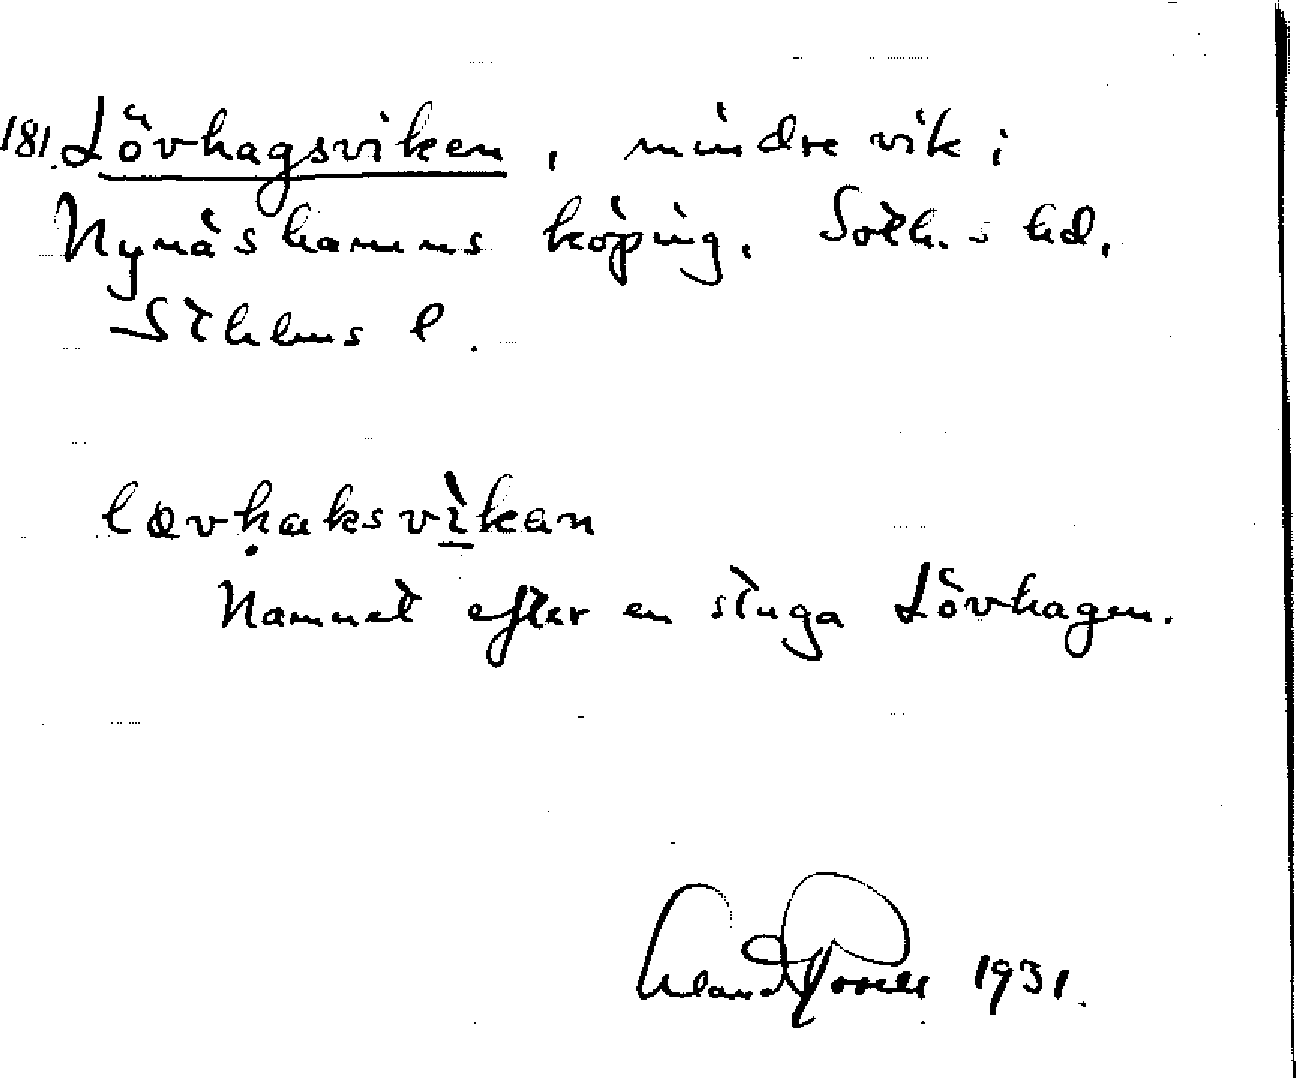 181. Lövhagsviken, mindre vik i
Nynäshamns köping. Soth. s hd.
Sthlms l.
Namnet efter en stuga Lövhagen.
1931.